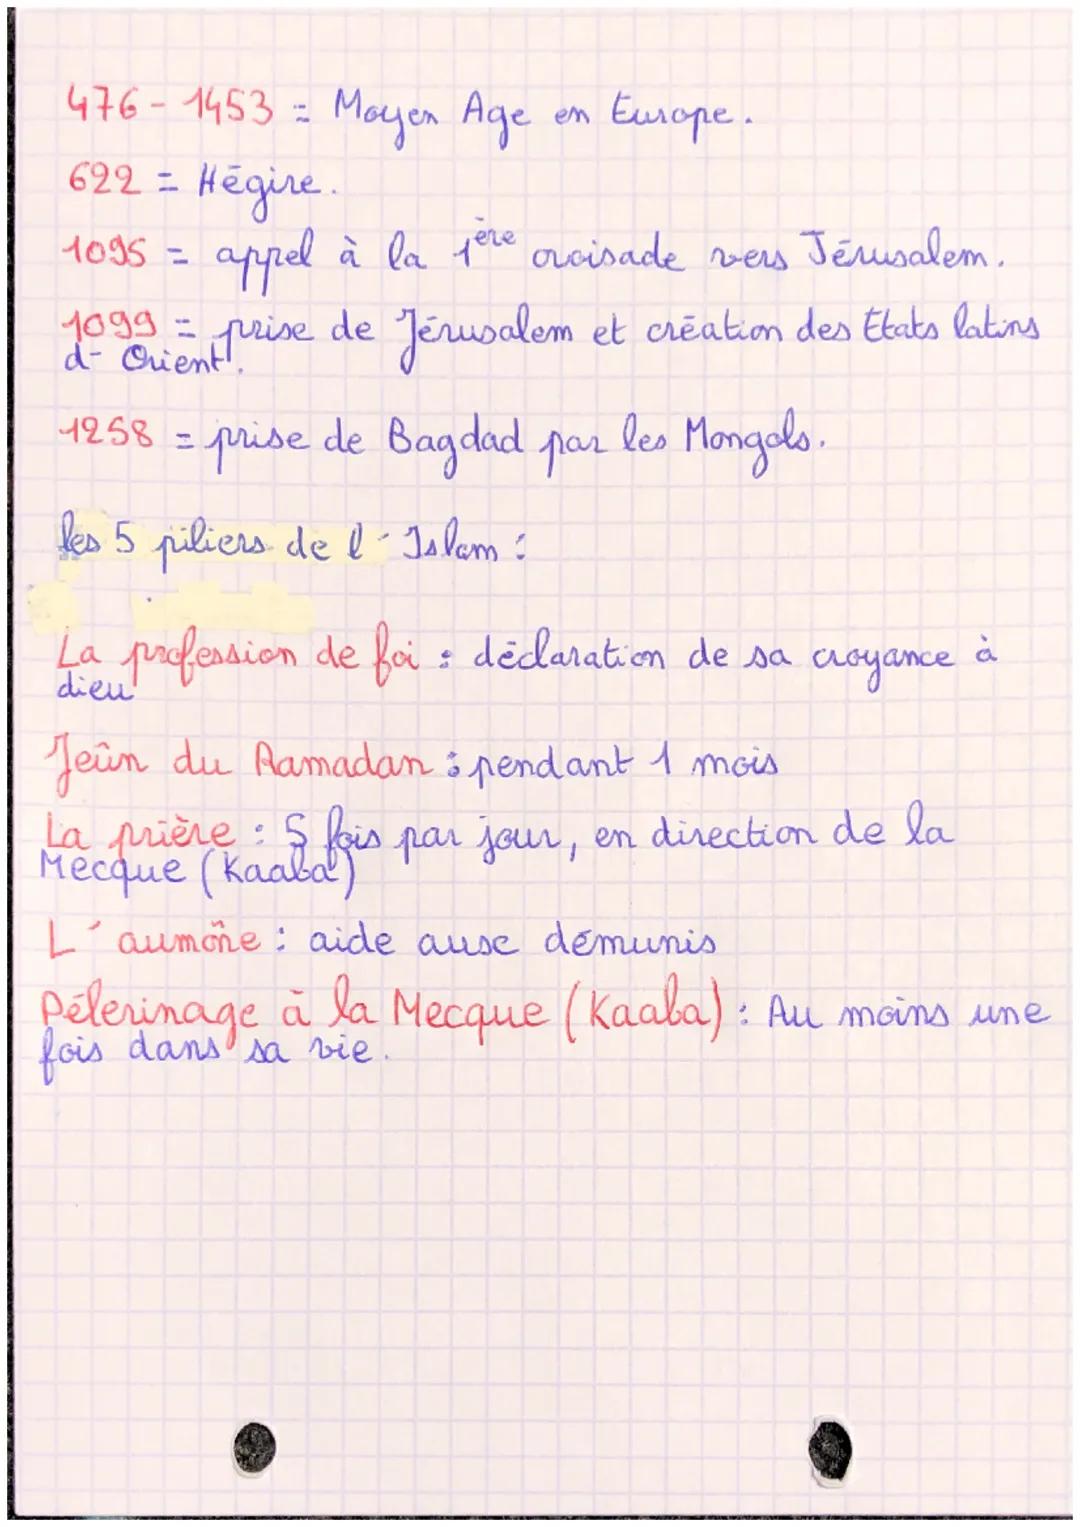 476 - 1453 = Moyen Age en Europe.
622 = Hégire.
1095 = appel à la 1ère croisade vers Jérusalem.
1099 = prise de Jérusalem et création des Etats latins
d'Orient.
1258 = prise de Bagdad par les Mongols.
les 5 piliers de l'Islam :
La profession de foi : déclaration de sa croyance à
dieu
Jeûn du Ramadan : pendant 1 mois
La prière : 5 fois par jour, en direction de la
Mecque (Kaaba)
L'aumône : aide aux démunis
Pélerinage à la Mecque (Kaaba) : Au moins une
fois dans sa vie.